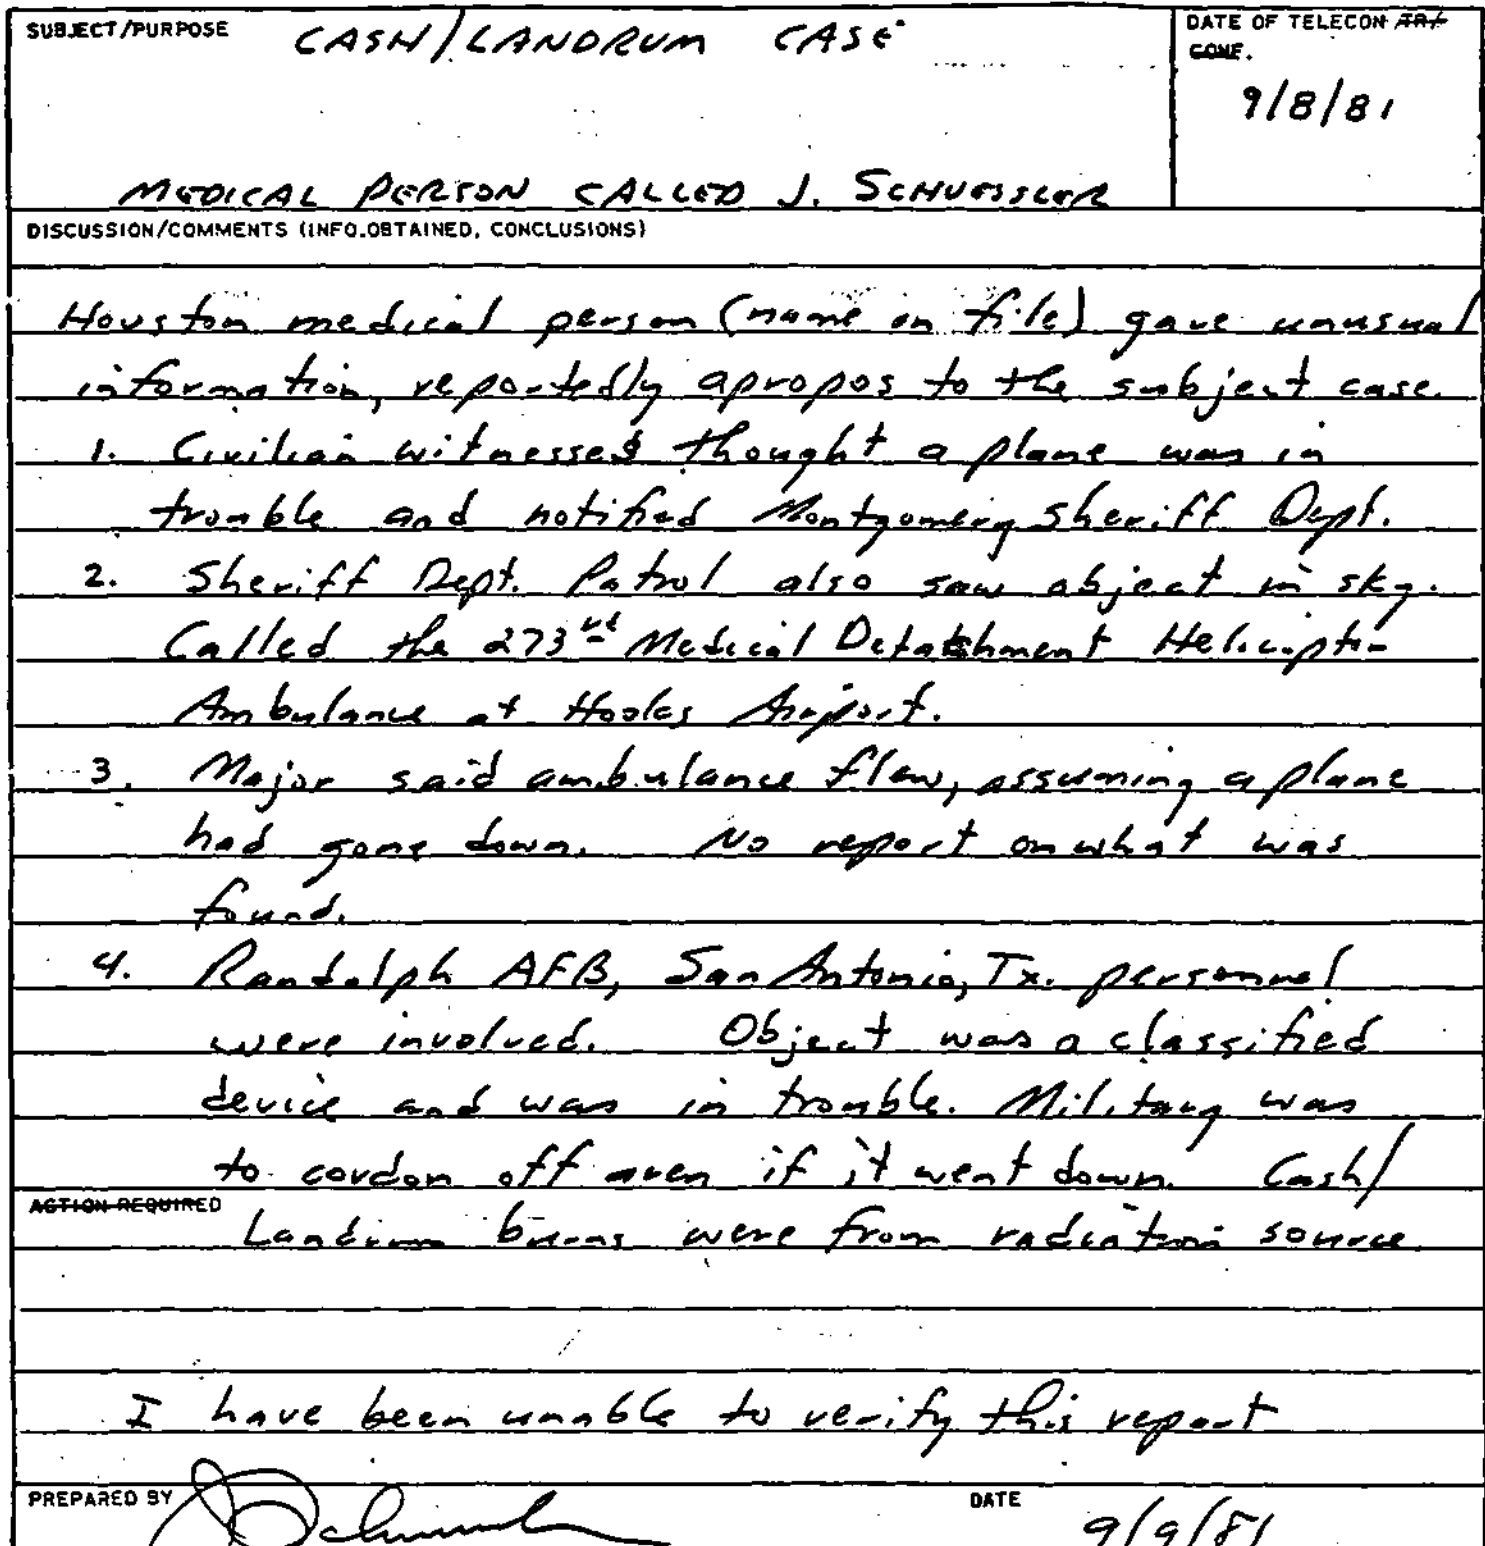 SUBJECT/PURPOSE CASH/LANDRUM CASE
DATE OF TELECON TRI
CONF.
9/8/81
MEDICAL PERSON CALLED J. SCHUESSLER
DISCUSSION/COMMENTS (INFO.OBTAINED, CONCLUSIONS)
Houston medical person (name on file) gave unusual
information, reportedly apropos to the subject case.
1. Civilian witnesses thought a plane was in
trouble and notified Montgomery sheriff Dept.
2. Sheriff Dept. Patrol also saw object in sky.
Called the 273rd Medical Detatchment Helicopter
Ambulance at Hooks Airport.
3. Major said ambulance flew, assuming a plane
had gone down. No report on what was
found.
4. Randolph AFB, San Antonio, Tx. personnel
were involved. Object was a classified
device and was in trouble. Military was
to cordon off area if it went down. Cash/
ACTION REQUIRED
Landrum burns were from radiation source
I have been unable to verify this report
PREPARED BY
DATE 9/9/81